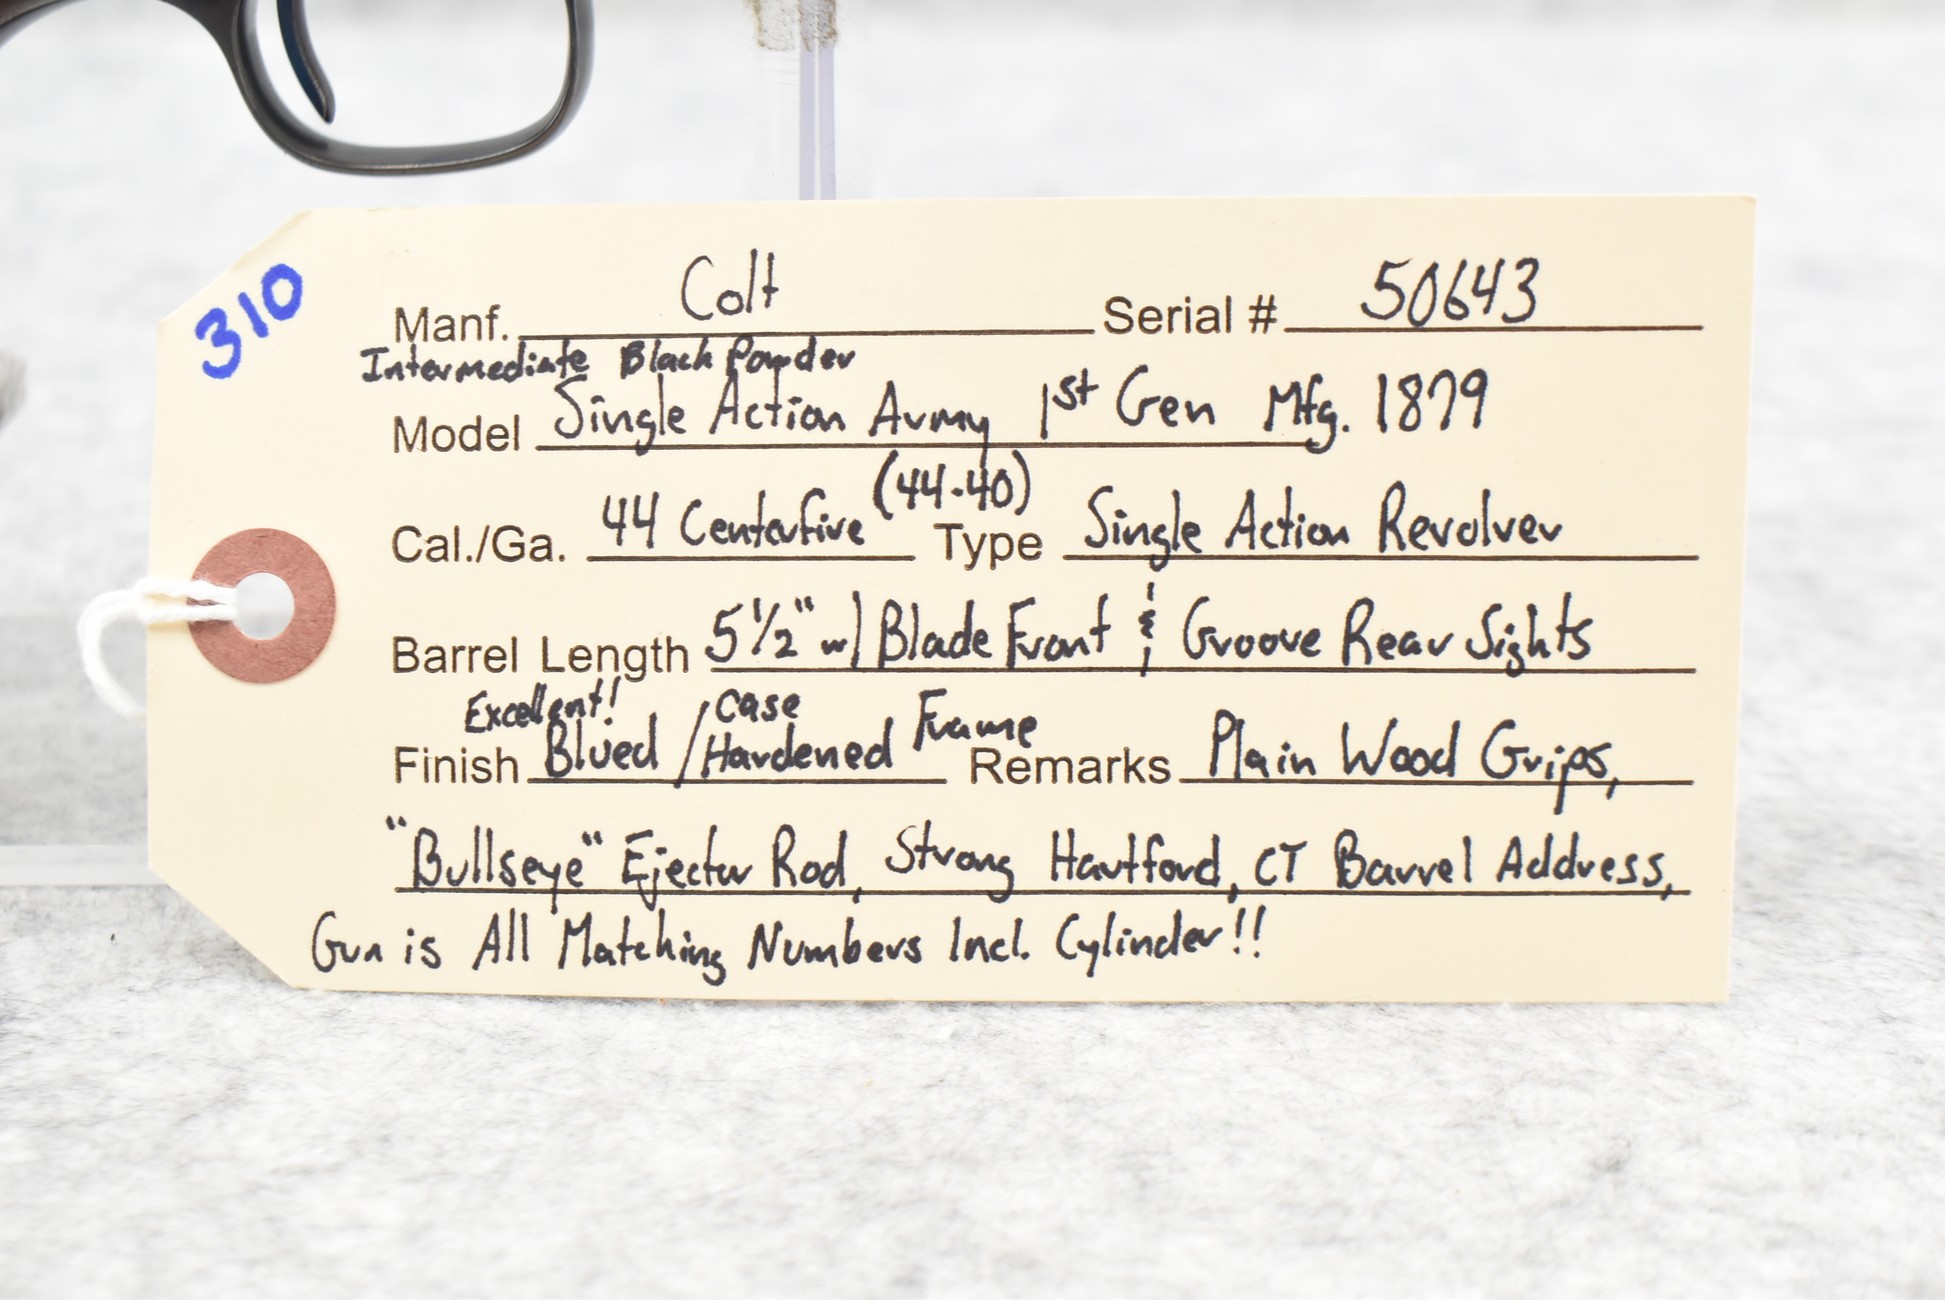 310
Manf. Colt Serial # 50643
Intermediate Black Powder
Model Single Action Army 1st Gen Mfg. 1879
(44-40)
Cal./Ga. 44 Centerfire Type Single Action Revolver
Barrel Length 5 1/2" w/ Blade Front & Groove Rear Sights
Excellent! Case Frame
Finish Blued / Hardened Remarks Plain Wood Grips,
"Bullseye" Ejector Rod, Strong Hartford, CT Barrel Address,
Gun is All Matching Numbers Incl. Cylinder!!